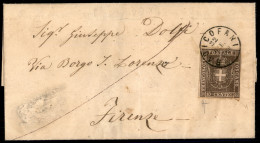 Sig.r Giuseppe Dolfi
Via Borgo S. Lorenzo
Firenze
RADICOFANI